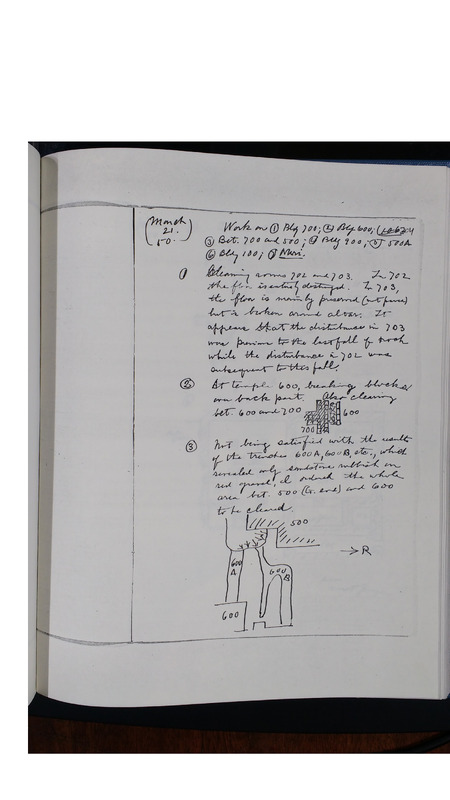 (March 21. 50.)
Work on ① Bldg 700; ② Bldg 600;
③ Bet. 700 and 500; ④ Bldg 900; ⑤ 500A
⑥ Bldg 100;
① Cleaning rooms 702 and 703. In 702
the floor is entirely destroyed. In 703,
the floor is mainly preserved
but is broken around altar. It
appears that the disturbance in 703
was previous to the last fall of roof
while the disturbance in 702 was
subsequent to this fall.
② At temple 600, breaking blocks
back part. Also clearing
bet. 600 and 700
600
700
③ Not being satisfied with the results
of the trenches 600A, 600B, etc., which
revealed only sandstone rubbish on
red gravel, I ordered the whole
area bet. 500 and 600
to be cleared.
500
R
600 A
600 B
600